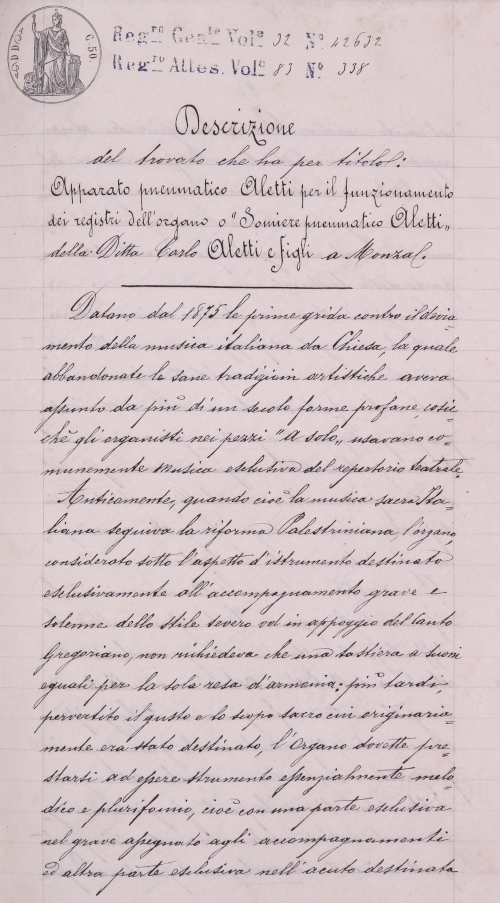 C. 50.
Reg.ro Gen.le Vol.o 32 N.o 42632
Reg.ro Attes. Vol.o 83 N.o 338
Descrizione
del trovato che ha per titolo:
Apparato pneumatico Aletti per il funzionamento
dei registri dell'organo o "Somiere pneumatico Aletti„
della Ditta Carlo Aletti e figli a Monza.
Datano dal 1875 le prime grida contro il devia-
mento della musica italiana da Chiesa, la quale
abbandonate le sane tradizioin artistiche aveva
assunto da più di un secolo forme profane, cosic-
chè gli organisti nei pezzi "a solo„ usavano co-
munemente musica esclusiva del repertorio teatrale.
Anticamente, quando cioè la musica sacra Ita-
liana seguiva la riforma Palestriniana, l'organo,
considerato sotto l'aspetto d'istrumento destinato
esclusivamente all'accompagnamento grave e
solenne dello stile severo od in appoggio del Canto
Gregoriano, non richiedeva che una tastiera a suoni
eguali per la sola resa d'armonia; più tardi,
pervertito il gusto e lo scopo sacro cui originaria-
mente era stato destinato, l'Organo dovette pre-
starsi ad essere strumento essenzialmente melo-
dico e plurifonio, cioè con una parte esclusiva
nel grave assegnato agli accompagnamenti
ed altra parte esclusiva nell'acuto destinata